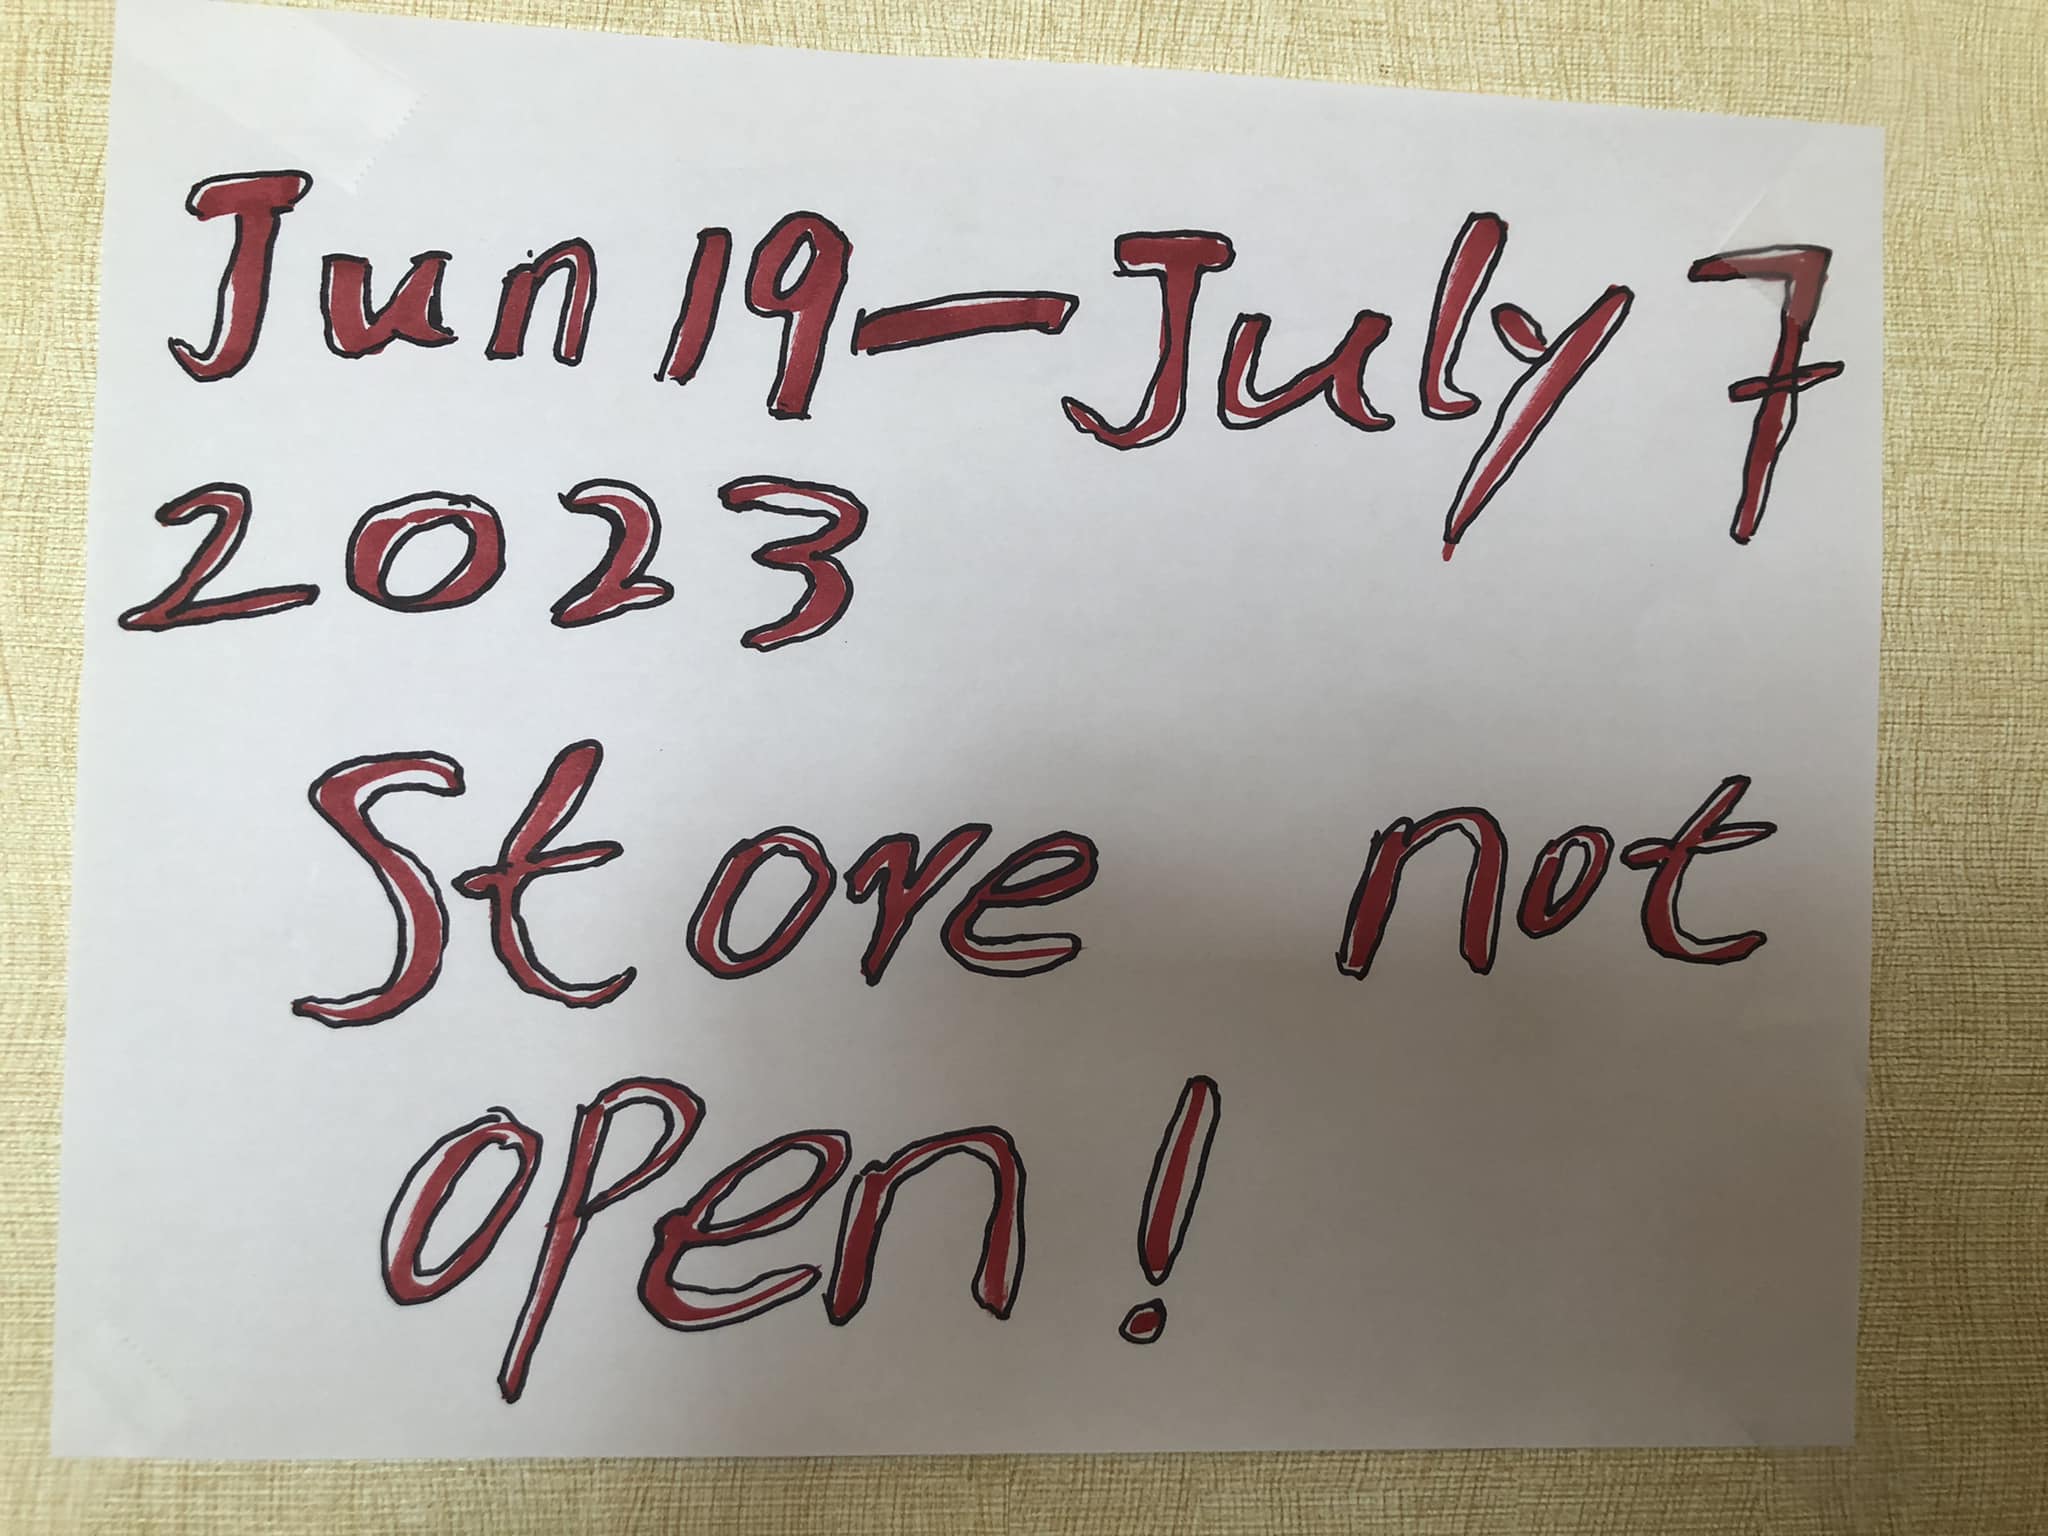 Jun 19 — July 7
2023
Store not
open!